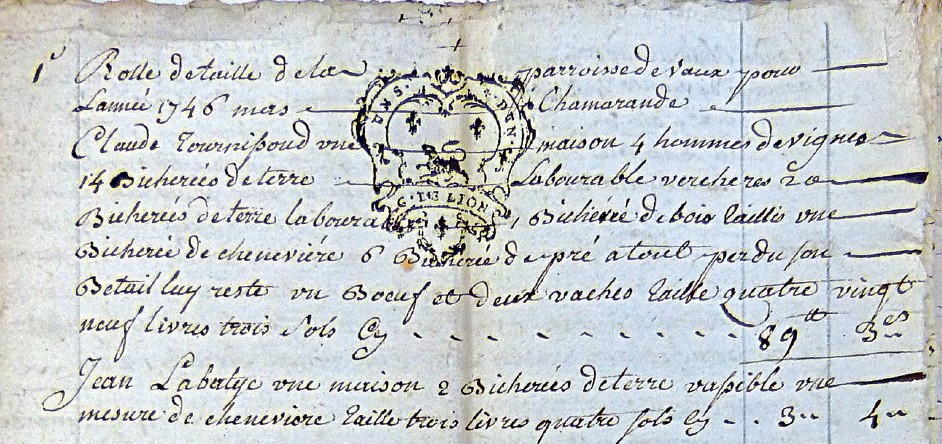 1r Rolle de taille de la parroisse de vaux pour
Lannée 1746 mas Chamarande
Claude Tournissoud vne maison 4 hommes de vignes
14 Bicherées de terre Labourable vercheres 20
Bicherées de terre labourable 1 Bicherée de bois taillis vne
Bicherée de chenevière 6 Bicherée de pré a tout perdu son
Betail luy reste vn Boeuf et deux vaches taille quatre vingt
neuf livres trois sols Cy 89tt 3s
Jean Labalye vne maison 2 Bicherées de terre vne
mesure de cheneviere taille trois livres quatre sols Cy 3 4
G. DE LION